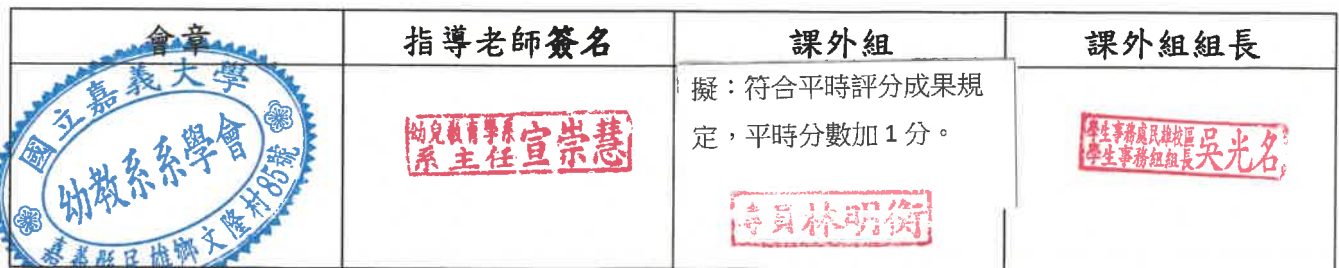 會章
指導老師簽名
課外組
課外組組長
國立嘉義大學
幼教系系學會
嘉義縣民雄鄉文隆村85號
幼兒教育學系
系主任宣崇慧
擬：符合平時評分成果規
定，平時分數加1分。
專員林明衡
學生事務處民雄校區
學生事務組組長吳光名